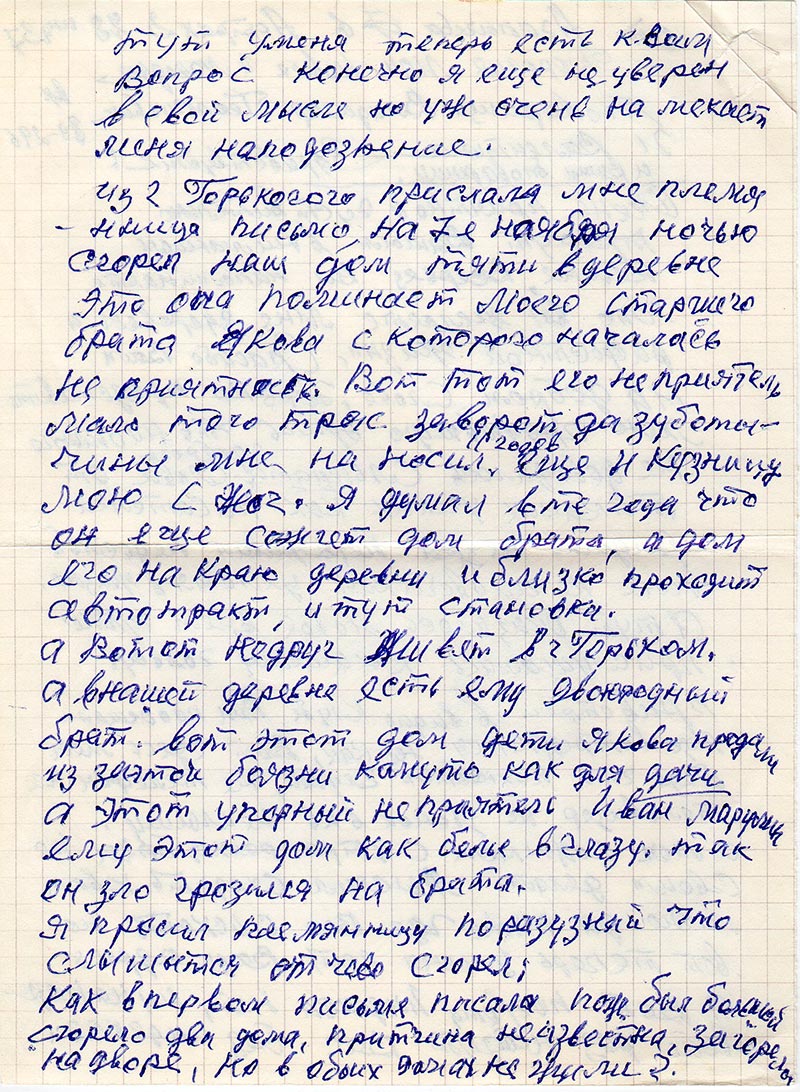 тут уменя теперь есть к вам
вопрос конечно я еще не уверен
в свой мысле но уж очень на мекает
меня наподозрение.
из г Горькосого прислала мне племя
-нница письмо, на 7е наября ночью
сгорел наш дом тяти вдеревне
это она поминает моего старшего
брата Якова с которого началась
не приятность. Вот тот его неприятель
мало того трас заворот да зуботы-
чины мне на носил. 11 годов еще и кузницу
мою с жог. Я думал вте года что
он яще сожгет дом брата, а дом
его на краю деревни и близко проходит
автотракт, и тут становка.
а вотот недруг живет в г Горьком.
а внашей деревне есть ему двоюродный
брат. вот этот дом дети Якова продали
из заэтой боязни кануто как для дачи
а этот упорный не приятель Иван
ему этот дом как бельо в глазу. так
он зло грозился на брата.
я просил племянницу поразузнай что
слышится от чево сгорел;
Как впервом письмя писала пож. был большой
сгорело два дома, притчина неизвестна, загорелось
на дворе, но в обоих домах не жили?.